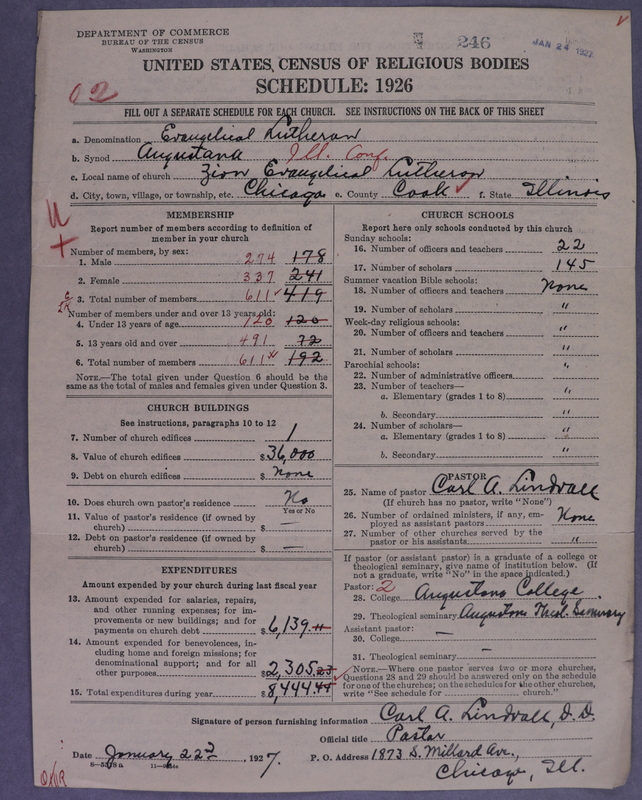 DEPARTMENT OF COMMERCE
BUREAU OF THE CENSUS
WASHINGTON
246
JAN 24 1927
UNITED STATES CENSUS OF RELIGIOUS BODIES
SCHEDULE: 1926
02
FILL OUT A SEPARATE SCHEDULE FOR EACH CHURCH. SEE INSTRUCTIONS ON THE BACK OF THIS SHEET
a. Denomination Evangelical Lutheran
b. Synod Augustana Ill. Conf.
c. Local name of church Zion Evangelical Lutheran
d. City, town, village, or township, etc. Chicago e. County Cook f. State Illinois
MEMBERSHIP
Report number of members according to definition of
member in your church
Number of members, by sex:
1. Male 274 178
2. Female 337 241
3. Total number of members 611 419
Number of members under and over 13 years old:
4. Under 13 years of age 120 120
5. 13 years old and over 491 72
6. Total number of members 611 192
NOTE.—The total given under Question 6 should be the
same as the total of males and females given under Question 3.
CHURCH BUILDINGS
See instructions, paragraphs 10 to 12
7. Number of church edifices 1
8. Value of church edifices $36,000
9. Debt on church edifices $ None
10. Does church own pastor's residence No
Yes or No
11. Value of pastor's residence (if owned by
church) $ —
12. Debt on pastor's residence (if owned by
church) $ —
EXPENDITURES
Amount expended by your church during last fiscal year
13. Amount expended for salaries, repairs,
and other running expenses; for im-
provements or new buildings; and for
payments on church debt $6,139.11
14. Amount expended for benevolences, in-
cluding home and foreign missions; for
denominational support; and for all
other purposes $2,305.23
15. Total expenditures during year $8,444.44
CHURCH SCHOOLS
Report here only schools conducted by this church
Sunday schools:
16. Number of officers and teachers 22
17. Number of scholars 145
Summer vacation Bible schools:
18. Number of officers and teachers None
19. Number of scholars "
Week-day religious schools:
20. Number of officers and teachers "
21. Number of scholars "
Parochial schools:
22. Number of administrative officers "
23. Number of teachers—
a. Elementary (grades 1 to 8) "
b. Secondary "
24. Number of scholars—
a. Elementary (grades 1 to 8) "
b. Secondary "
PASTOR
25. Name of pastor Carl A. Lindvall
(If church has no pastor, write "None")
26. Number of ordained ministers, if any, em-
ployed as assistant pastors None
27. Number of other churches served by the
pastor or his assistants "
If pastor (or assistant pastor) is a graduate of a college or
theological seminary, give name of institution below. (If
not a graduate, write "No" in the space indicated.)
Pastor: 2
28. College Augustana College
29. Theological seminary Augustana Theol. Seminary
Assistant pastor:
30. College —
31. Theological seminary —
NOTE.—Where one pastor serves two or more churches,
Questions 28 and 29 should be answered only on the schedule
for one of the churches; on the schedules for the other churches,
write "See schedule for church."
Signature of person furnishing information Carl A. Lindvall, D.D.
Official title Pastor
Date January 22d, 1927. P. O. Address 1873 S. Millard Ave.,
Chicago, Ill.